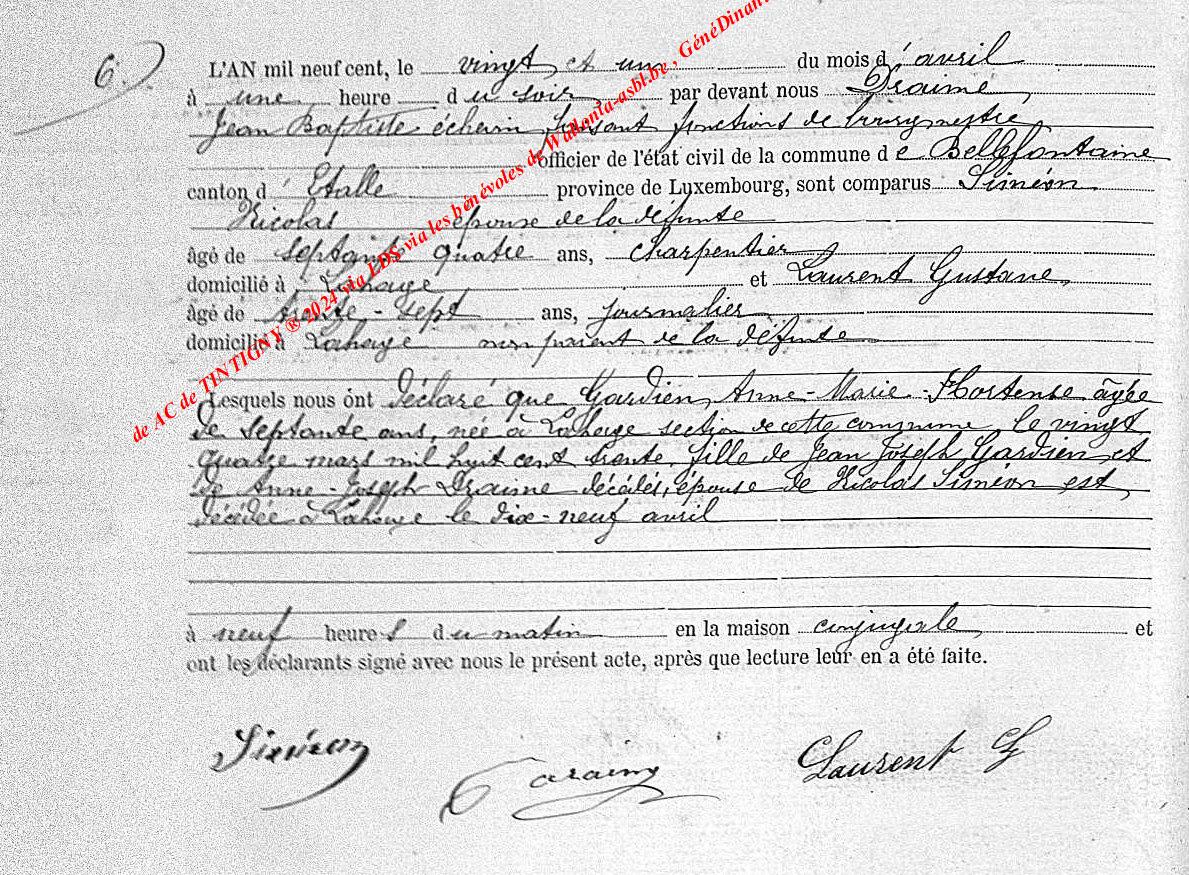 6.
L'AN mil neuf cent, le vingt et un du mois d'avril
à une heure du soir par devant nous Draime,
Jean Baptiste échevin, faisant fonctions de bourgmestre
officier de l'état civil de la commune de Bellefontaine
canton d'Etalle province de Luxembourg, sont comparus Siméon
Nicolas épouse de la défunte
âgé de septante quatre ans, charpentier
domicilié à Lahage et Laurent Gustave,
âgé de trente-sept ans, journalier
domicilié à Lahage non parent de la défunte
Lesquels nous ont déclaré que Gardien, Anne-Marie-Hortense âgée
de septante ans, née à Lahage section de cette commune, le vingt
quatre mars mil huit cent trente, fille de Jean Joseph Gardien et
de Anne-Joseph Draime décédés, épouse de Nicolas Siméon est
décédée à Lahage le dix-neuf avril
à neuf heures du matin en la maison conjugale et
ont les déclarants signé avec nous le présent acte, après que lecture leur en a été faite.
Siméon
Laurent G
de AC de TINTIGNY ® 2024 via LDS via les bénévoles de Wallonia-asbl.be , GénéDinant